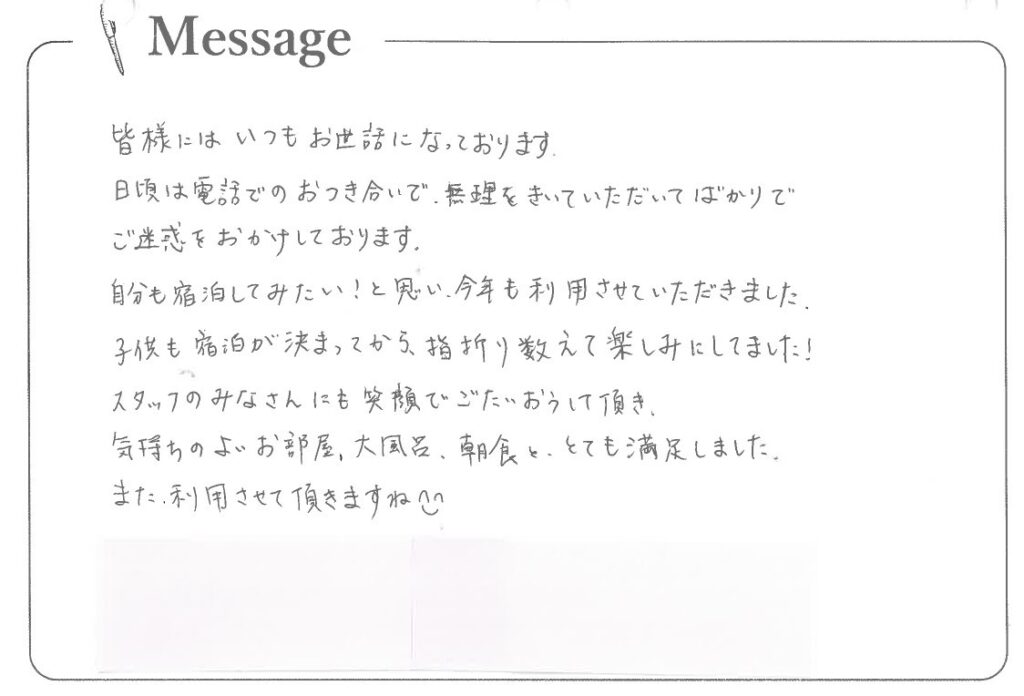 Message
皆様には いつも お世話になっております.
日頃は電話でのおつき合いで、無理をきいていただいてばかりで
ご迷惑をおかけしております.
自分も宿泊してみたい!と思い、今年も利用させていただきました.
子供も宿泊が決まってから、指折り数えて楽しみにしてました!
スタッフのみなさんにも笑顔でごたいおうして頂き、
気持ちのよいお部屋, 大風呂、朝食と、とても満足しました.
また、利用させて頂きますね